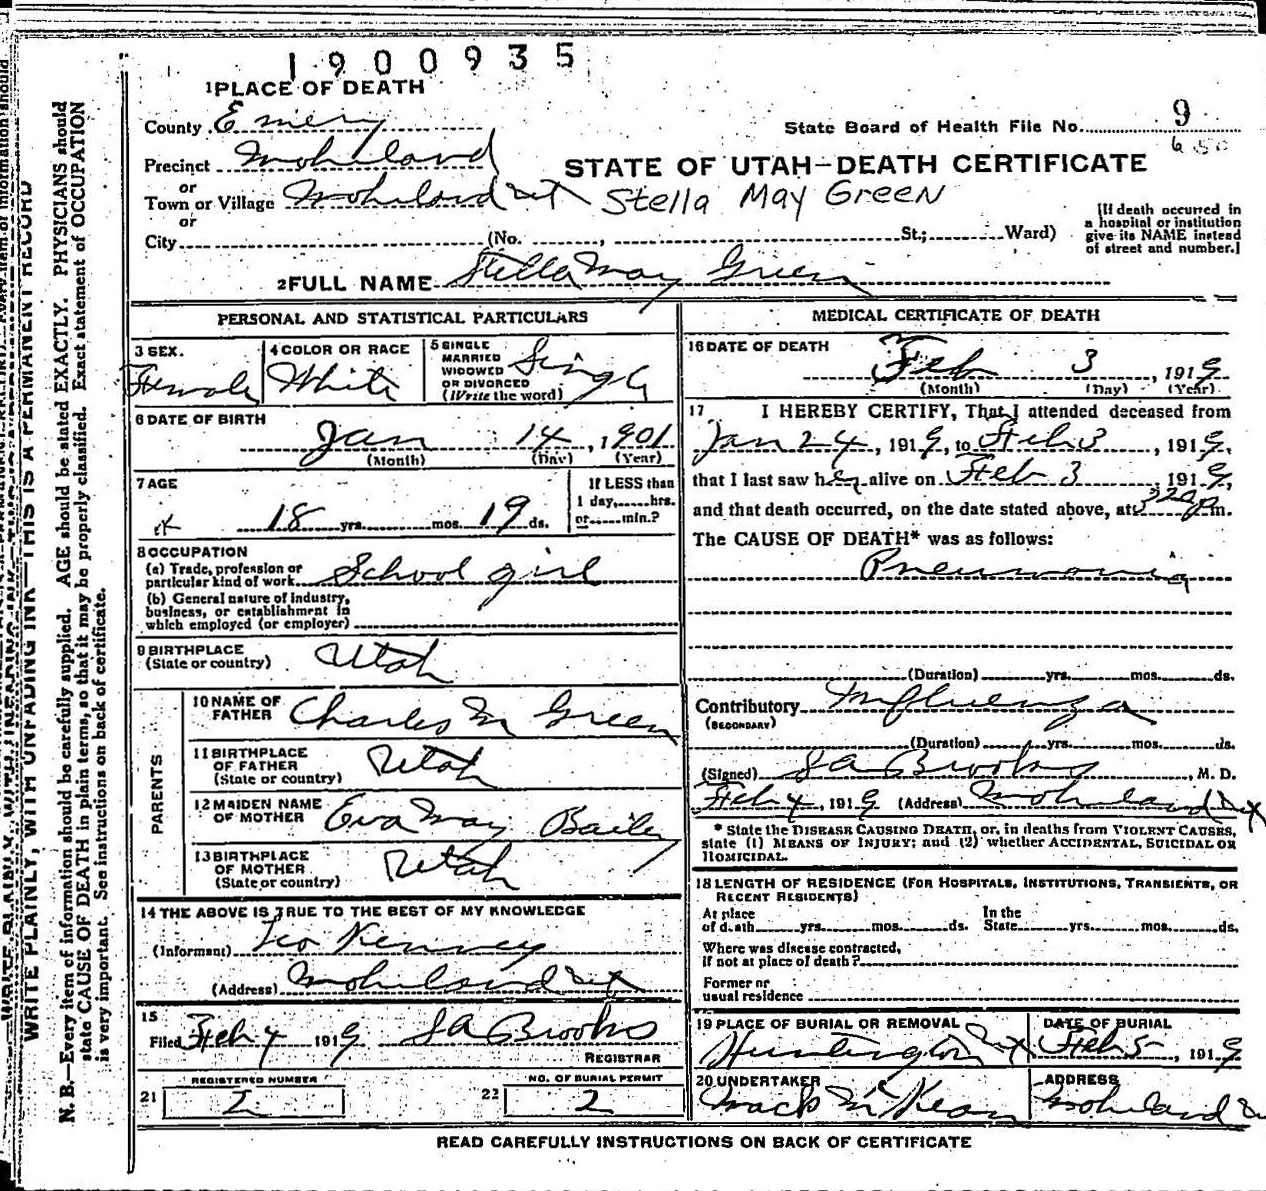 1900935
1 PLACE OF DEATH
County Emery
State Board of Health File No. 9
Precinct Mohrland
STATE OF UTAH—DEATH CERTIFICATE
or
Town or Village Mohrland Ut Stella May Green
or
City (No. , St.; Ward)
[If death occurred in
a hospital or institution
give its NAME instead
of street and number.]
2 FULL NAME Stella May Green
PERSONAL AND STATISTICAL PARTICULARS
3 SEX. Female
4 COLOR OR RACE White
5 SINGLE
MARRIED
WIDOWED
OR DIVORCED
(Write the word) Single
6 DATE OF BIRTH
Jan 14, 1901
(Month) (Day) (Year)
7 AGE
18 yrs. mos. 19 ds.
If LESS than
1 day, hrs.
or min.?
8 OCCUPATION
(a) Trade, profession or
particular kind of work School girl
(b) General nature of industry,
business, or establishment in
which employed (or employer)
9 BIRTHPLACE
(State or country) Utah
PARENTS
10 NAME OF
FATHER Charles M Green
11 BIRTHPLACE
OF FATHER
(State or country) Utah
12 MAIDEN NAME
OF MOTHER Eva May Bailey
13 BIRTHPLACE
OF MOTHER
(State or country) Utah
14 THE ABOVE IS TRUE TO THE BEST OF MY KNOWLEDGE
(Informant) Leo Kenney
(Address) Mohrland Ut
15
Filed Feb 4 1919 J A Brooks
REGISTRAR
REGISTERED NUMBER
21 2
NO. OF BURIAL PERMIT
22 2
MEDICAL CERTIFICATE OF DEATH
16 DATE OF DEATH
Feb 3, 1919
(Month) (Day) (Year)
17 I HEREBY CERTIFY, That I attended deceased from
Jan 24, 1919, to Feb 3, 1919,
that I last saw her alive on Feb 3, 1919,
and that death occurred, on the date stated above, at m.
The CAUSE OF DEATH* was as follows:
Pneumonia
(Duration) yrs. mos. ds.
Contributory Influenza
(SECONDARY)
(Duration) yrs. mos. ds.
(Signed) J A Brooks, M. D.
Feb 4, 1919 (Address) Mohrland Ut
* State the DISEASE CAUSING DEATH, or, in deaths from VIOLENT CAUSES,
state (1) MEANS OF INJURY; and (2) whether ACCIDENTAL, SUICIDAL OR
HOMICIDAL.
18 LENGTH OF RESIDENCE (FOR HOSPITALS, INSTITUTIONS, TRANSIENTS, OR
RECENT RESIDENTS)
At place
of death yrs. mos. ds.
In the
State yrs. mos. ds.
Where was disease contracted,
if not at place of death?
Former or
usual residence
19 PLACE OF BURIAL OR REMOVAL
Huntington Ut
DATE OF BURIAL
Feb 5, 1919
20 UNDERTAKER
Mack McKean
ADDRESS
Mohrland Ut
READ CAREFULLY INSTRUCTIONS ON BACK OF CERTIFICATE
WRITE PLAINLY, WITH UNFADING INK—THIS IS A PERMANENT RECORD
N. B.—Every item of information should be carefully supplied. AGE should be stated EXACTLY. PHYSICIANS should
state CAUSE OF DEATH in plain terms, so that it may be properly classified. Exact statement of OCCUPATION
is very important. See instructions on back of certificate.